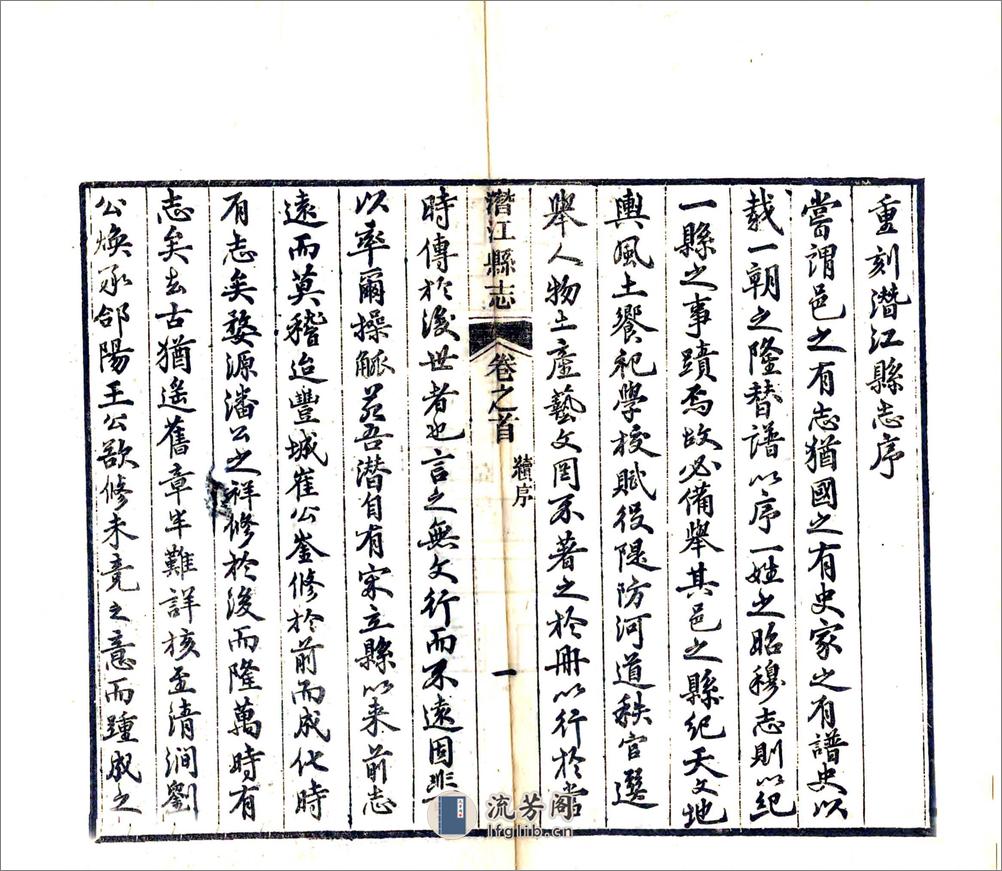 重刻潛江縣志序
嘗謂邑之有志猶國之有史家之有譜史以
載一朝之隆替譜以序一姓之昭穆志則以紀
一縣之事蹟焉故必備舉其邑之縣紀天文地
輿風土饗祀學校賦役隄防河道秩官選
舉人物土產藝文罔不著之於冊以行於當
潛江縣志
卷之首
續序
一
時傳於後世者也言之無文行而不遠固非
以率爾操觚若吾潛自有宋立縣以來前志
遠而莫稽迨豐城崔公崟修於前而成化時
有志矣婺源潘公之祥修於後而隆萬時有
志矣去古猶遙舊章半難詳核至清澗劉
公煥承郃陽王公欲修未竟之意而踵成之
流芳阁
lfglib.cn